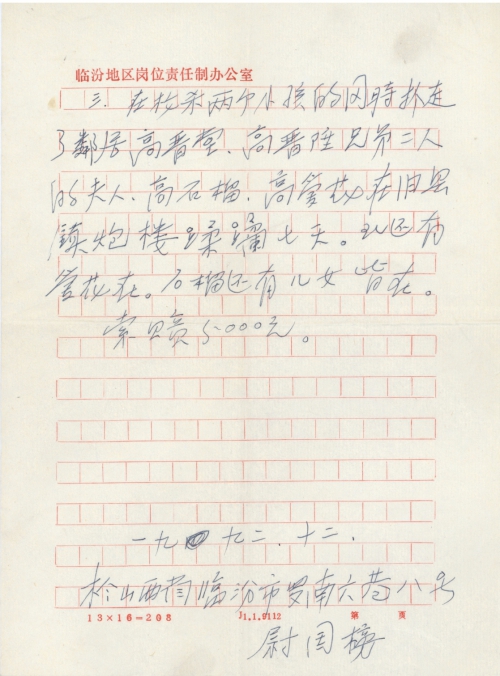 临汾地区岗位责任制办公室
三、在枚杀两个小孩的同時抓走
了鄰居高晋堂、高晋陞兄弟二人
的夫人、高石榴、高管花在旧县
鎮炮楼蹂躪七天。现还有
管花在。石榴还有儿女皆在。
索赔5000元。
一九九二.十二.
於山西省临汾市贾南六巷八号
13×16=208 J1.1.9112 第 页
尉国榜